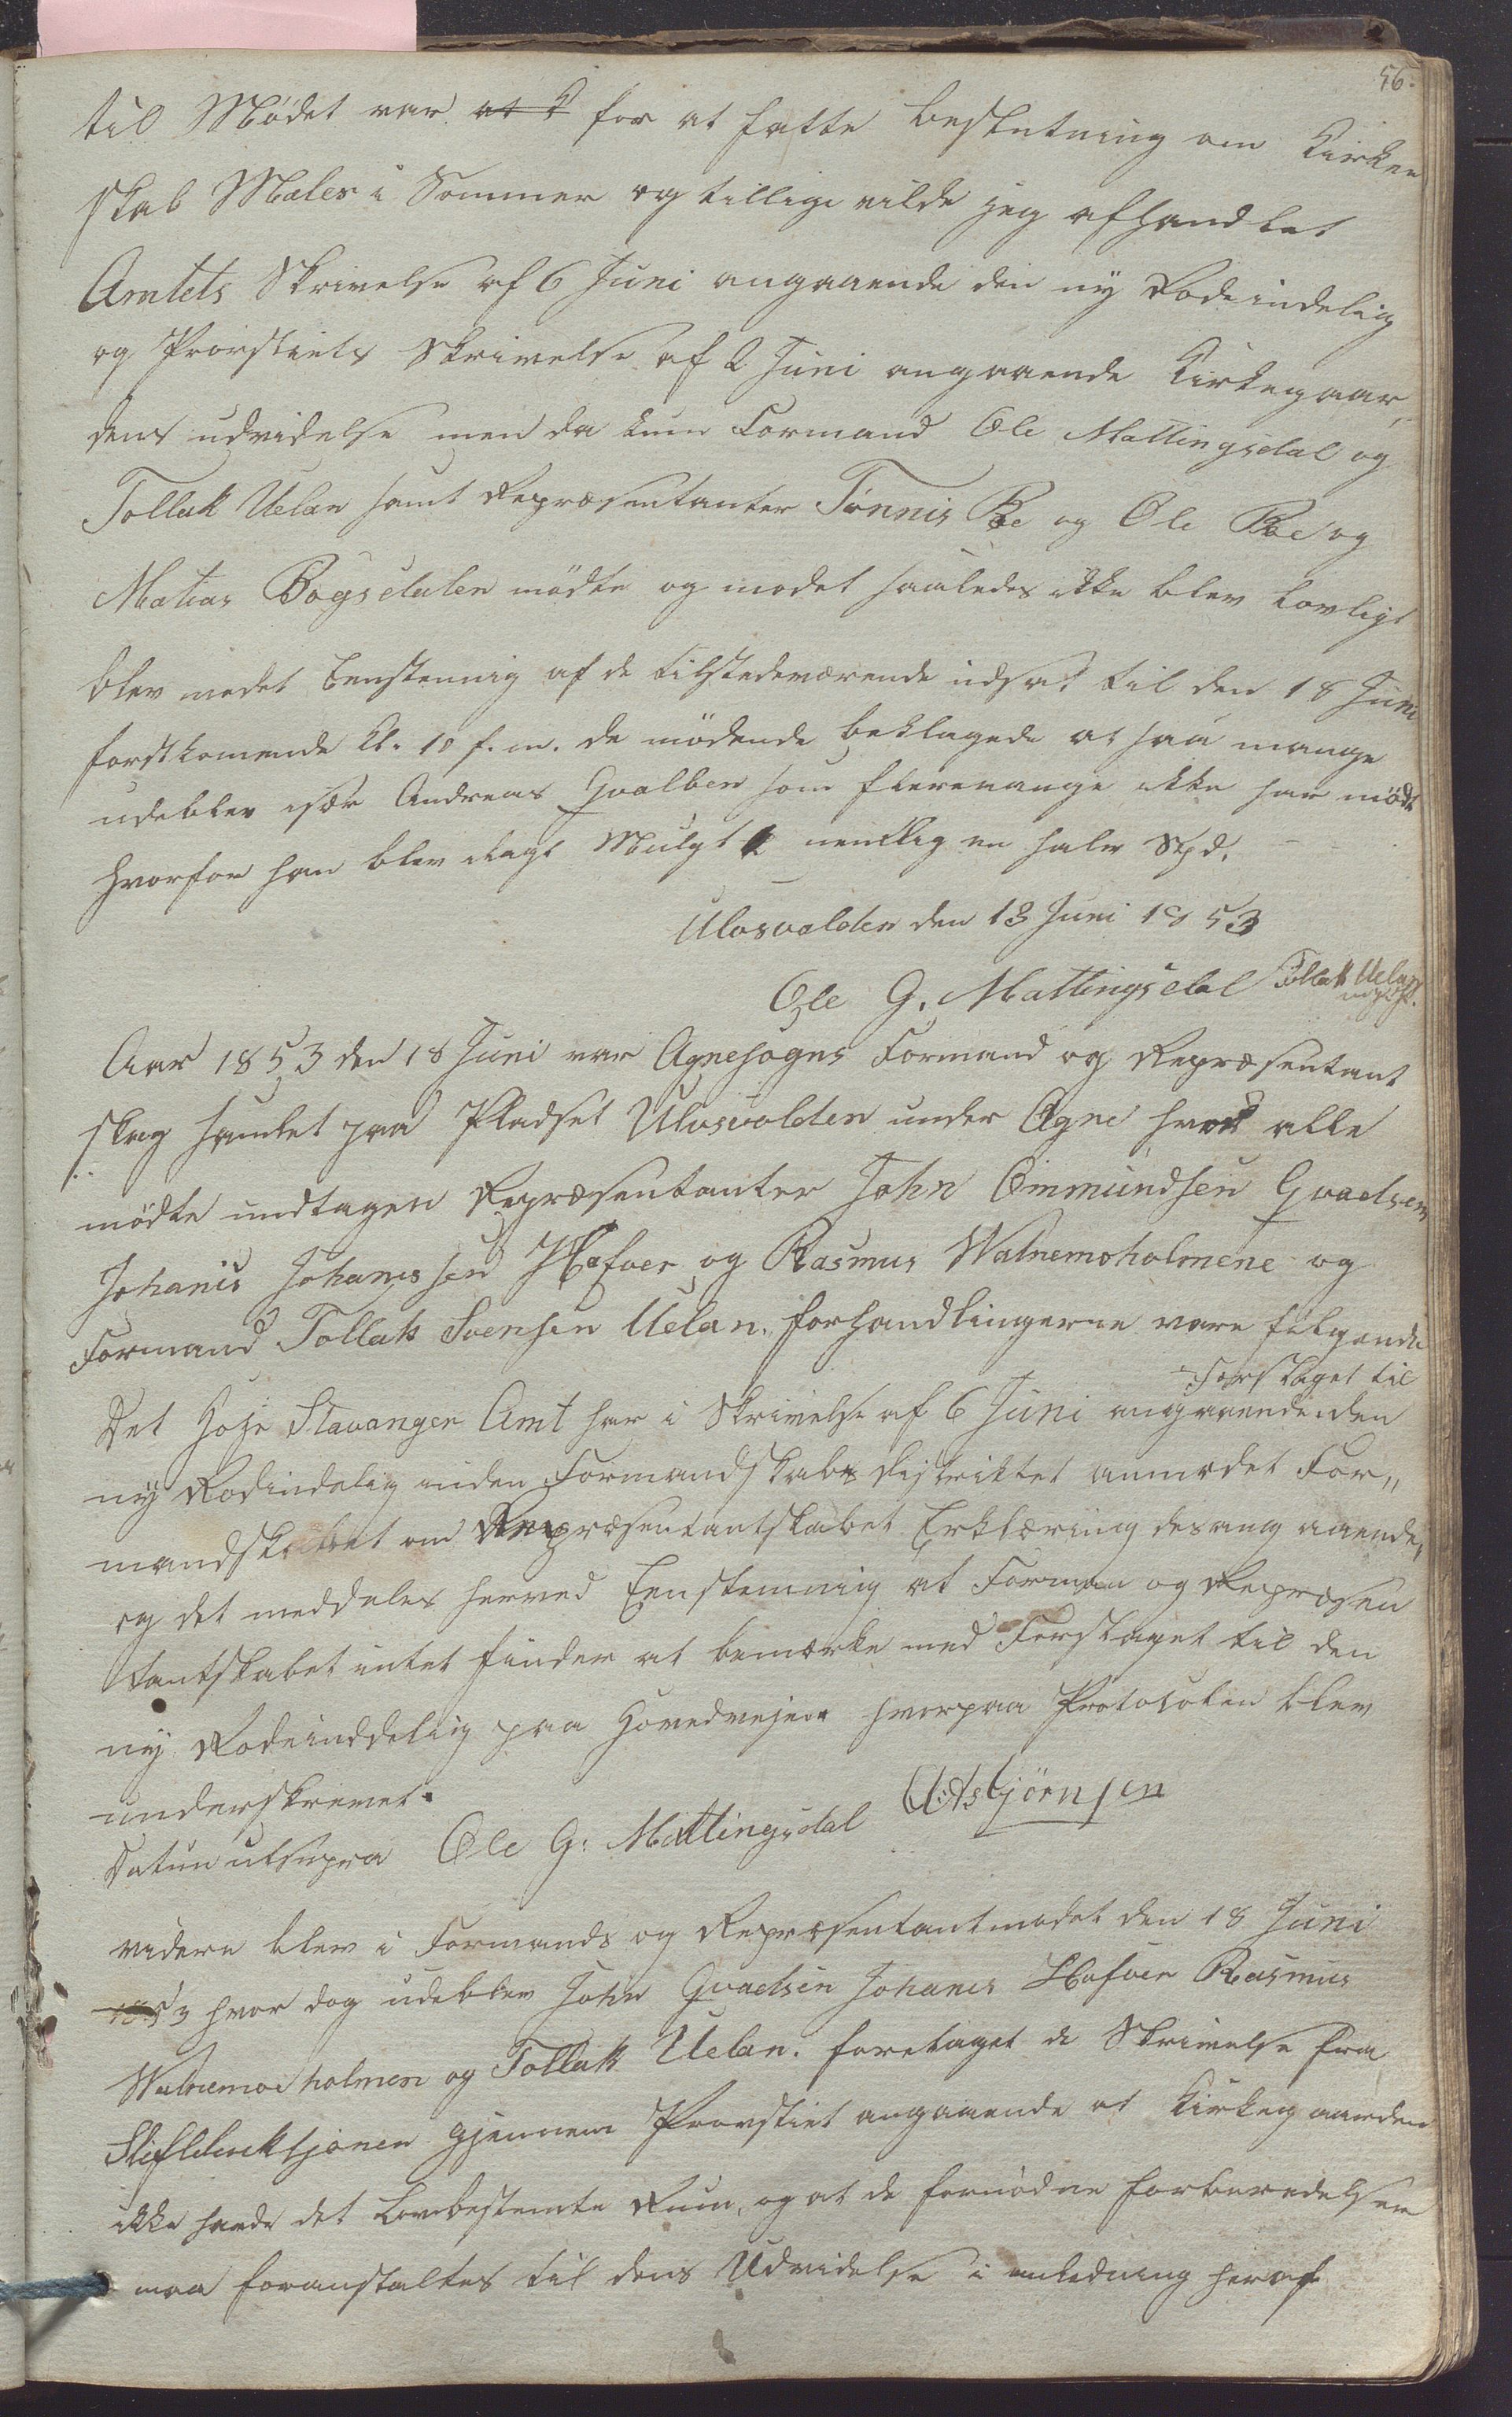 56.
til Mødet var at for at fatte beslutning om Kirken
skal Males i Sommer og tillige vilde jeg afhandlet
Amtets Skrivelse af 6 Juni angaaende den ny Rodeindeling
og Provstiets Skrivelse af 2 Juni angaaende Kirkegaar,
dens udvidelse men da kun Formand Ole Mattingsdal og
Tollak Uelan samt Repræsentanter Tønnis Bøe og Ole Bøe og
Matias Bogsdalen mødte og modet saaledes ikke blev lovligt
blev modet Eenstemig af de tilstedeværende udsat til den 18 Juni
forstkomende Kl. 10 f. m. de mødende beklagede at saa mange
udeblev især Andreas Gvalben som flere mange ikke har mødt
hvorfor han blev ilagt Mulgt nemllig en halv Spd.
Ulvsvolden den 13 Juni 1853
Ole G. Mattingsdal Tollak Uelan
Aar 1853 den 18 Juni var Agnesogns Formand og Repræsentant
skag samlet paa Pladset Ulvsvolden under Agne hvor alle
mødte undtagen Repræsentanter John Ommundsen Gvadsem
Johanis Johanessen Hafver og Rasmus Walnemoholmene og
Formand Tollak Svensen Uelan. forhandlingerne vare følgende
Forslaget til
Det Høie Stavanger Amt har i Skrivelse af 6 Juni angaaende den
ny Rodindeling inden Formandskabs distriktet anmodet For„
mandskabet om Repræsentantskabet Erklæring desangaaende,
og det meddeles herved Eenstemmig at Forman og Repræsen
tantskabet intet finder at bemærke med Forslaget til den
ny Rodeinddeling paa Hovedvejene hvorpaa Protokolen blev
underskrevet.
Datum utsupra Ole G: Mattingsdal Asbjörnsen
videre blev i Formands og Repræsentantmodet den 18 Juni
1853 hvor dog udeblev John Gvadsein Johanes Hafver Rasmus
Walnemoe holmen og Tollak Uelan. foretaget de Skrivelse fra
Stiftdirektjonen gjennem Provstiet angaaende at Kirkegaarden
ikke havde det Lovbestemte Rum, og at de fornødne forberedelser
maa foranstaltes til dens Udvidelse i anledning heraf